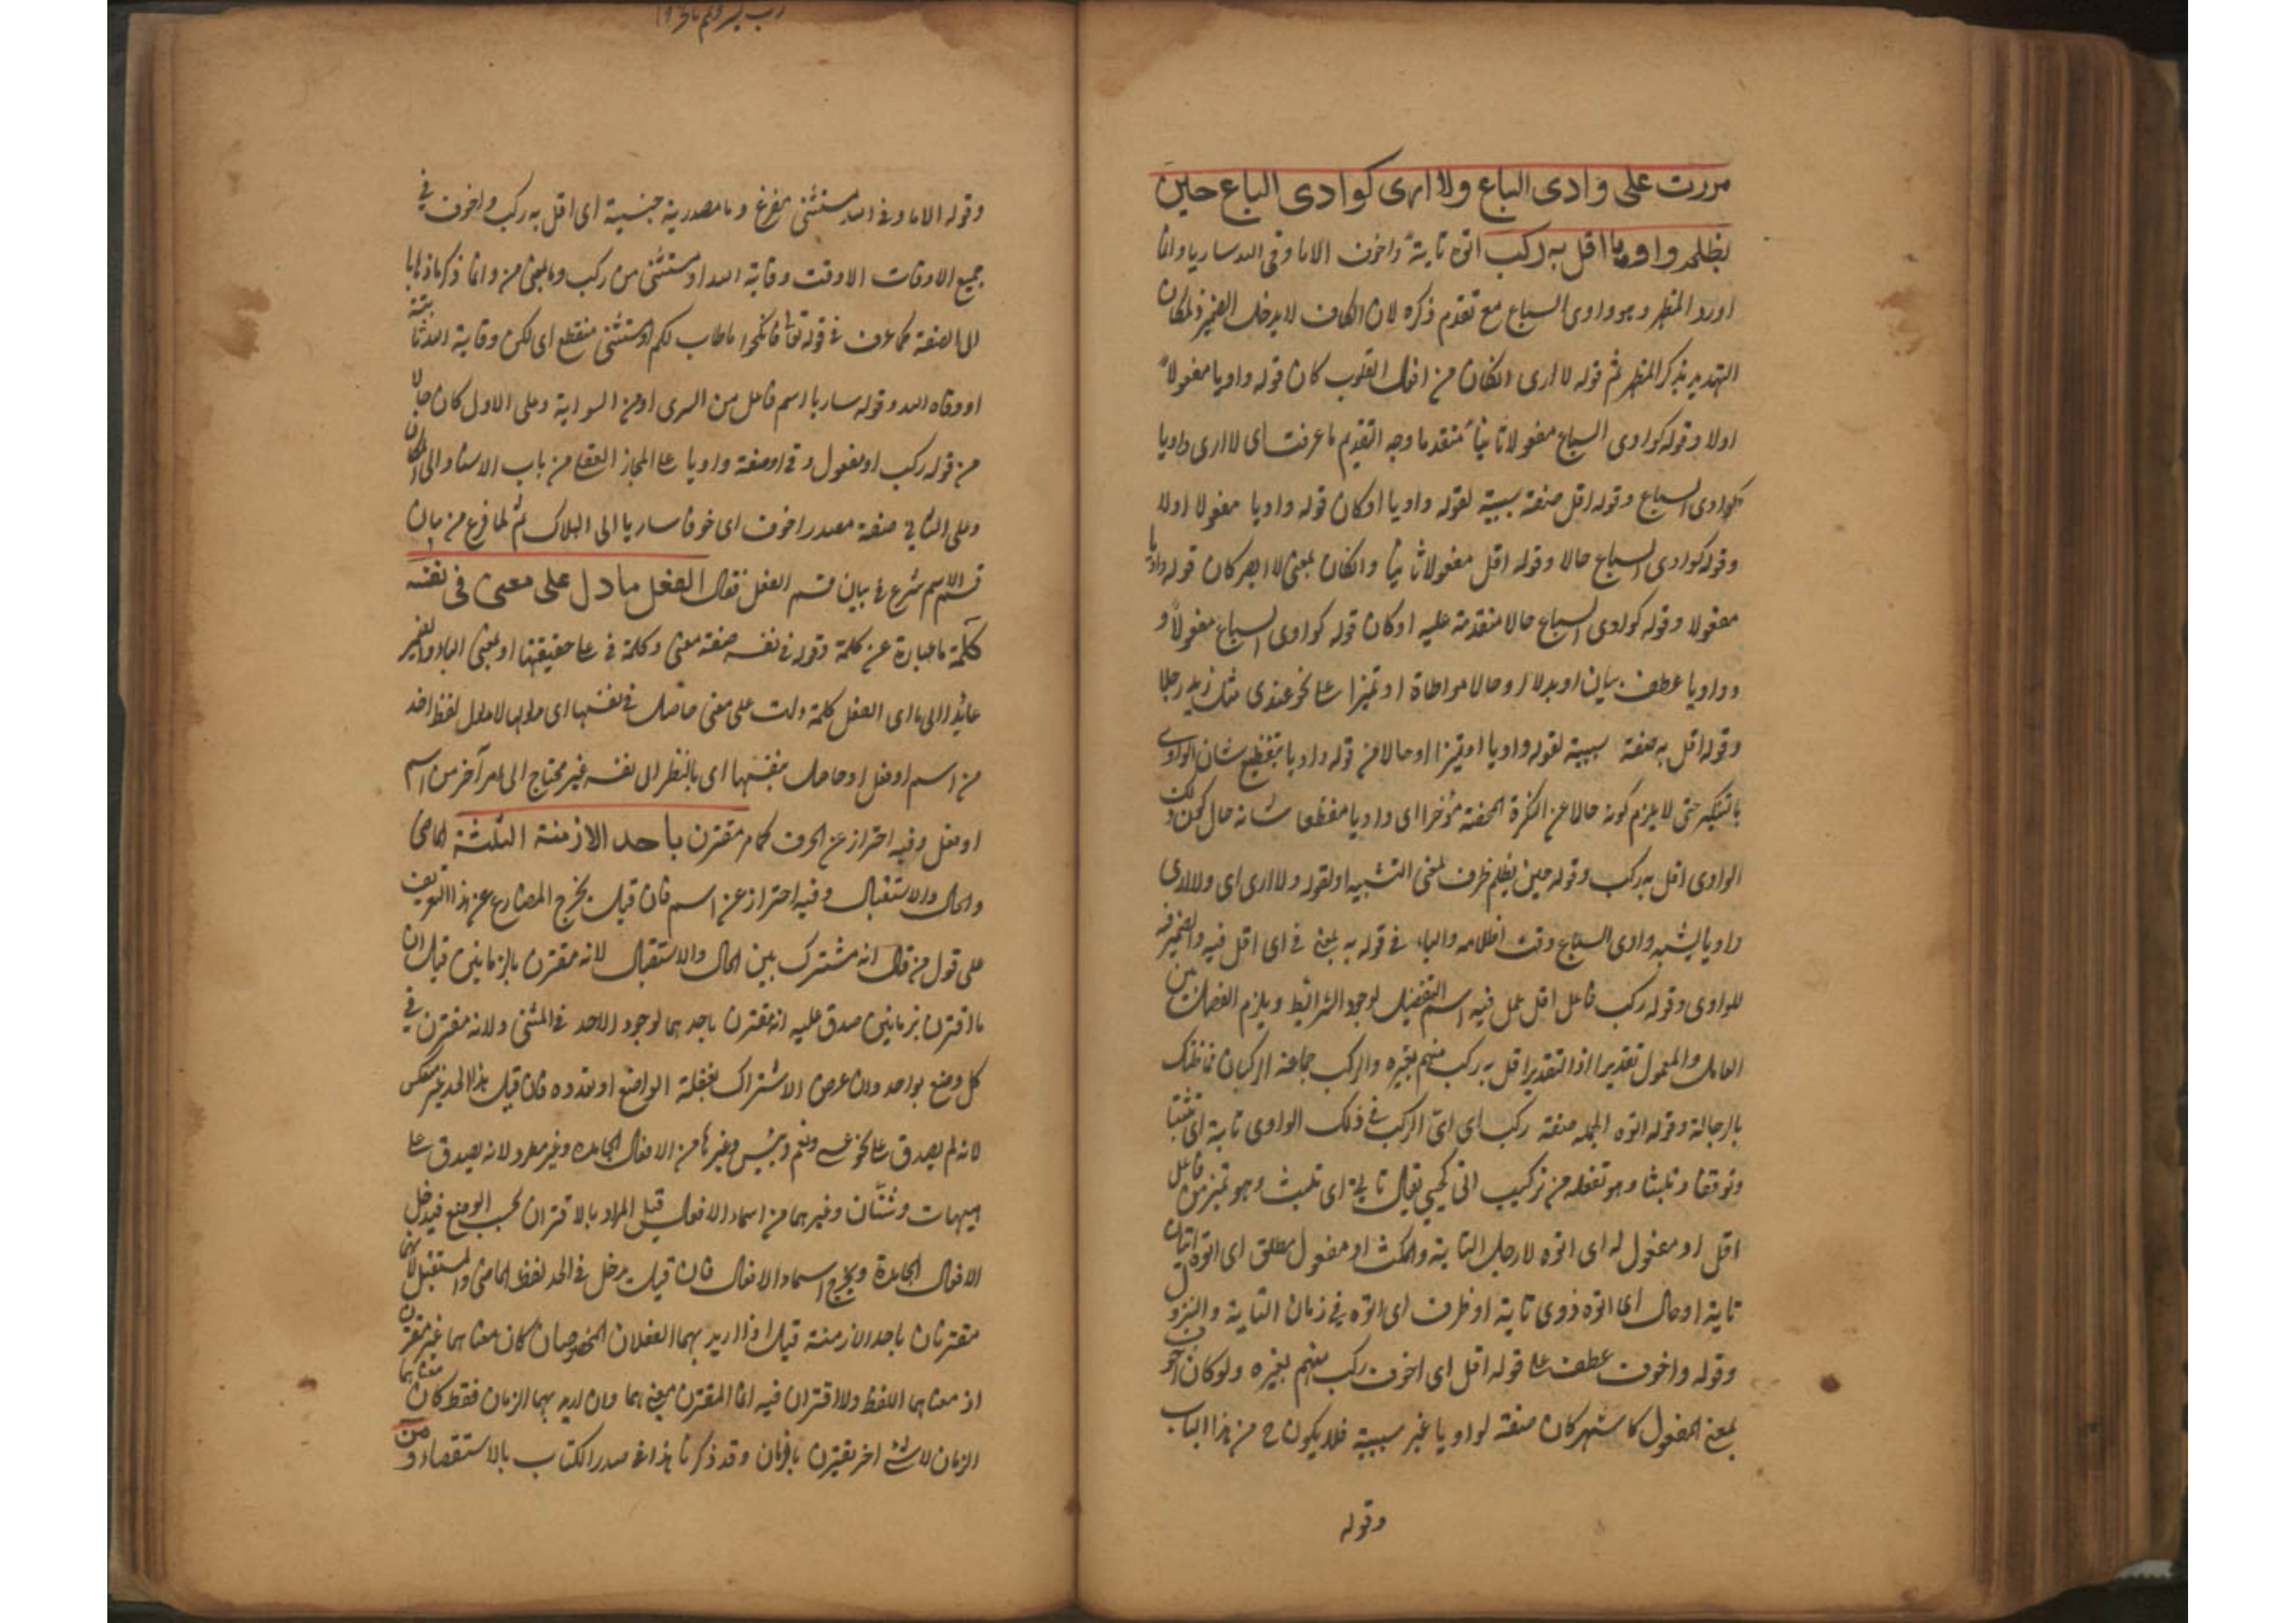 مررت على وادى السباع ولا ارى كوادى السباع حين
يظلم واديا اقل به ركب اتوه تاية واخوف الا ما وقى الله ساريا وانما
اورد المظهر وهو وادى السباع مع تقدم ذكره لان الكاف لا يدخل الضمير
التهديد بذكر المظهر ثم قوله لا ارى ان كان من افعال القلوب كان قوله واديا مفعولا
اولا وقوله كوادى السباع مفعولا ثانيا متقدما وجه التقديم ما عرفت اى لا ارى واديا
كوادى السباع وقوله اقل صفة سببية لقوله واديا او كان قوله واديا مفعولا اولا
وقوله كوادى السباع حالا وقوله اقل مفعولا ثانيا وان كان بمعنى لا ابصر كان قوله واديا
مفعولا وقوله كوادى السباع حالا متقدمة عليه او كان قوله كوادى السباع مفعولا و
وواديا عطف بيان او بدلا او حالا مواطاة او تميزا على نحو عندى مثل زيد رجلا
وقوله اقل به صفة سببية لقوله واديا او تميزا او حالا من قوله واديا بتفظيع شان الوادى
بالتنكير حتى لا يلزم كونه حالا عن النكرة المحضة مؤخرا اى واديا مفظعا شانه حال كون ذلك
الوادى اقل به ركب وقوله حين يظلم ظرف لمعنى التشبيه او لقوله ولا ارى اى ولا ارى
واديا يشبه وادى السباع وقت اظلامه والباء فى قوله به بمعنى فى اى اقل فيه والضمير فيه
للوادى وقوله ركب فاعل اقل عمل فيه اسم التفضيل لوجود الشرائط ويلزم الفصل بين
العامل والمعمول تقديرا اذ التقدير اقل به ركب منهم بغيره والركب جماعة الركبان
بالرجالة وقوله اتوه الجملة صفة ركب اى اتى الركب فى ذلك الوادى تاية اى تثبتا
وتوقفا وتلبثا وهو تفعلة من تركيب اتى كحيى يقال تاية اى تلبث وهو تميز من فاعل
اقل او مفعول له اى اتوه لاجل التاية والمكث او مفعول مطلق اى اتوه اتيان
تاية او حال اى اتوه ذوى تاية او ظرف اى اتوه فى زمان التاية والنزول
وقوله واخوف عطف على قوله اقل اى اخوف ركب منهم بغيره ولو كان اخوف
بمعنى المفعول كاشهر كان صفة لواديا غير سببية فلا يكون ح من هذا الباب
وقوله
وقوله الا ما وقى الله مستثنى مفرغ وما مصدرية حينية اى اقل به ركب واخوف فى
جميع الاوقات الا وقت وقاية الله او مستثنى من ركب وما بمعنى من وانما ذكر ما ذهابا
الى الصفة كما عرف فى قوله تعالى فانكحوا ما طاب لكم او مستثنى منقطع اى لكن وقاية الله
او وقاه الله وقوله ساريا اسم فاعل من السرى او من السراية وعلى الاول كان حالا
من قوله ركب او مفعول وقى او صفة واديا على المجاز العقلى من باب الاسناد الى المكان
وعلى الثانى صفة مصدر اخوف اى خوفا ساريا الى الهلاك ثم لما فرغ من بيان
قسم الاسم شرع فى بيان قسم الفعل فقال الفعل ما دل على معنى فى نفسه
كلمة ما عبارة عن كلمة وقوله فى نفسه صفة معنى وكلمة فى على حقيقتها او بمعنى الباء والضمير
عائد الى ما اى الفعل كلمة دلت على معنى حاصل فى نفسها اى مدلولها لا مدلول لفظ اخر
من اسم او فعل او حاصل بنفسها اى بالنظر الى نفسه غير محتاج الى امر آخر من اسم
او فعل وفيه احتراز عن الحرف كما مر مقترن باحد الازمنة الثلثة الماضى
والحال والاستقبال وفيه احتراز عن اسم فان قيل يخرج المضارع عن هذا التعريف
على قول من قال انه مشترك بين الحال والاستقبال لانه مقترن بالزمانين قيل ان
ما اقترن بزمانين صدق عليه انه مقترن باحدهما لوجود الاحد فى المثنى ولانه مقترن فى
كل وضع بواحد وان عرض الاشتراك بغفلة الواضع او تعدده فان قيل هذا الحد غير منعكس
لانه لم يصدق على نحو عسى ونعم وبئس وغيرها من الافعال الجامدة وغير مطرد لانه يصدق على
هيهات وشتان وغيرهما من اسماء الافعال قيل المراد بالاقتران بحسب الوضع فيدخل
الافعال الجامدة ويخرج اسماء الافعال فان قيل يدخل فى الحد لفظ الماضى والمستقبل لانهما
مقترنان باحد الازمنة قيل اذا اريد بهما الفعلان المخصوصان كان معناهما غير مقترن
اذ معناهما اللفظ ولا اقتران فيه انما المقترن معنى هما وان اريد بهما الزمان فقط كان معناهما
الزمان لا شئ اخر يقترن بالزمان وقد ذكرنا هذا فى صدر الكتاب بالاستقصاء و من